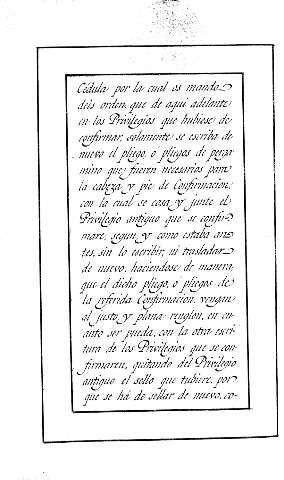 Cédula por la cual os mando
deis orden, que de aqui adelante
en los Privilegios que hubiese de
confirmar, solamente se escriba de
nuevo el pliego, ó pliegos de perga
mino que fueren necesarios para
la cabeza y pie de Confirmacion,
con la cual se cosa, y junte el
Privilegio antiguo que se confir-
mare, segun, y como estaba an-
tes, sin lo escribir, ni trasladar
de nuevo, haciendose de manera,
que el dicho pliego, ó pliegos de
la referida Confirmacion, vengan
al justo, y plana renglon, en cu-
anto ser pueda, con la otra escri-
tura de los Privilegios que se con-
firmaren, quitando del Privilegio
antiguo el sello que tubiere, por
que se há de sellar de nuevo, co-